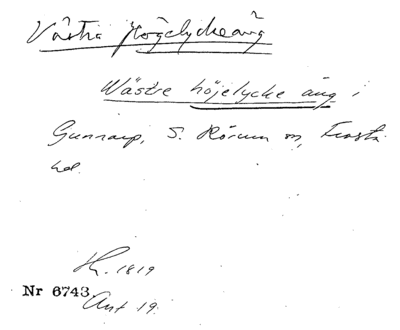 Västra Högelyckeäng
Wästre höjelycke äng i
Gunnarp, S. Rörum sn, Frosta
hd.
Sk. 1819
Nr 6743
Ant 19.